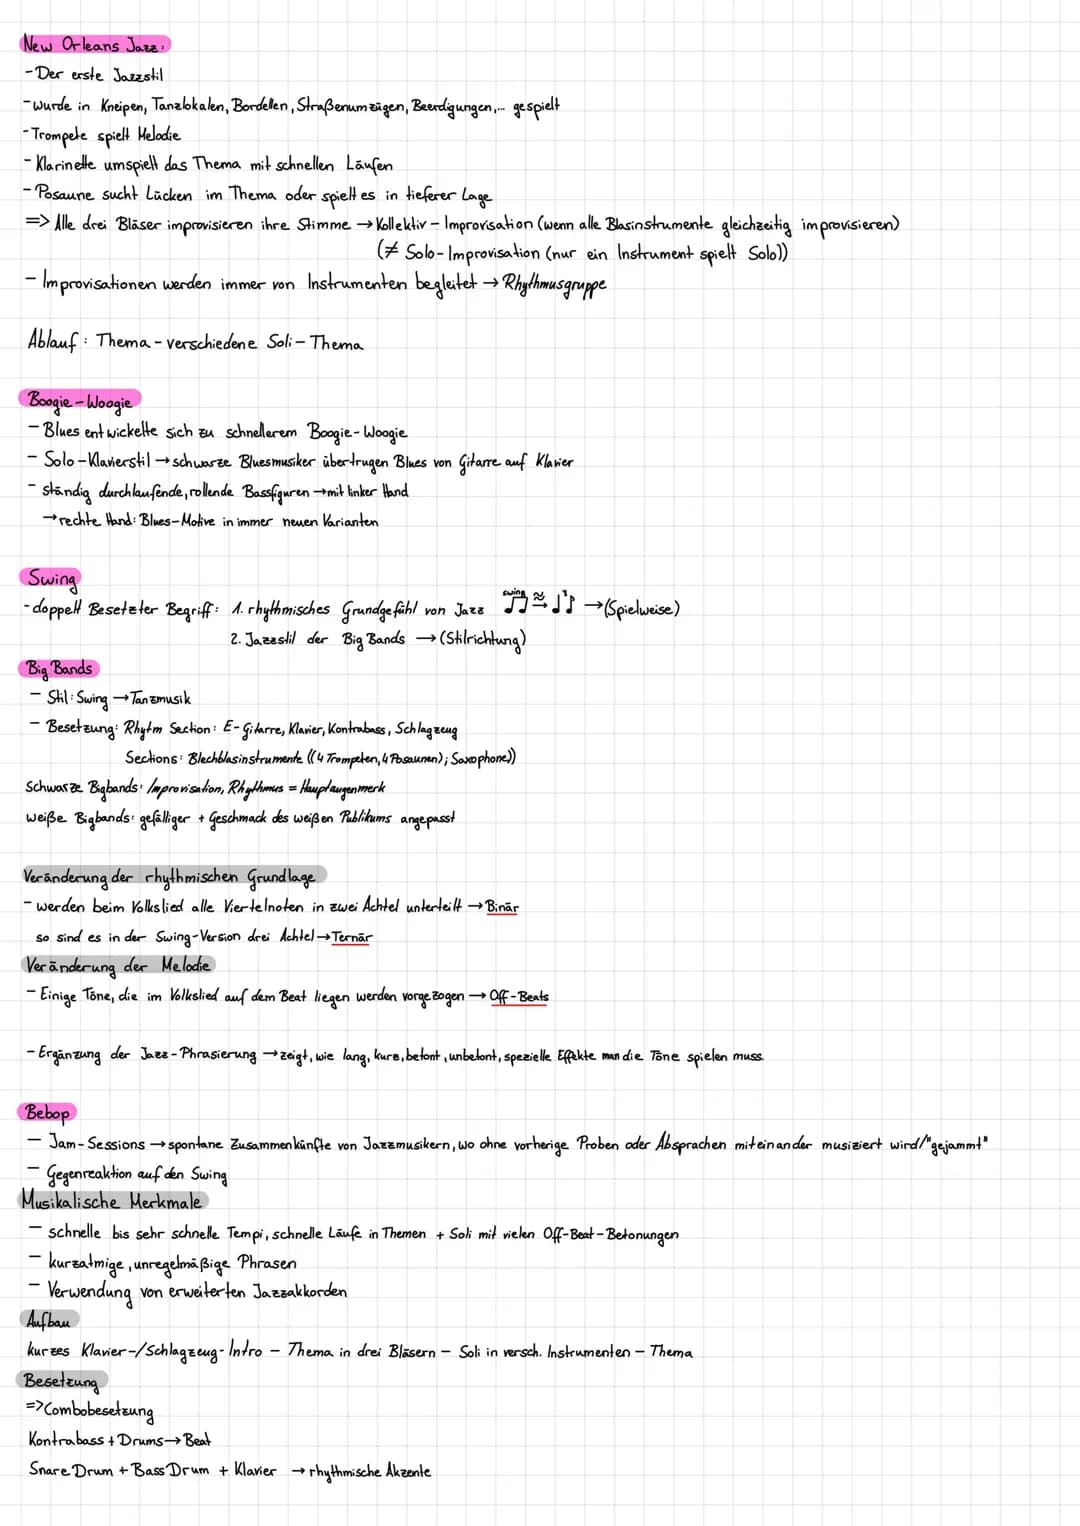 New Orleans Jazz:
- Der erste Jazzstil
- wurde in Kneipen, Tanzlokalen, Bordellen, Straßenumzügen, Beerdigungen,... gespielt
- Trompete spielt Melodie
- Klarinette umspielt das Thema mit schnellen Läufen
- Posaune sucht Lücken im Thema oder spielt es in tieferer Lage
=> Alle drei Bläser improvisieren ihre Stimme → Kollektiv - Improvisation (wenn alle Blasinstrumente gleichzeitig improvisieren)
(≠ Solo-Improvisation (nur ein Instrument spielt Solo))
- Improvisationen werden immer von Instrumenten begleitet → Rhythmusgruppe
Ablauf: Thema - verschiedene Soli - Thema
Boogie-Woogie
- Blues entwickelte sich zu schnellerem Boogie-Woogie
- Solo-Klavierstil → schwarze Bluesmusiker übertrugen Blues von Gitarre auf Klavier
- ständig durchlaufende, rollende Bassfiguren → mit linker Hand
→ rechte Hand: Blues-Motive in immer neuen Varianten
Swing
- doppelt Besetzter Begriff: 1. rhythmisches Grundgefühl von Jazz swing ♫ ≈ ♩ 3 ♪ → (Spielweise)
2. Jazzstil der Big Bands → (Stilrichtung)
Big Bands
- Stil: Swing → Tanzmusik
- Besetzung: Rhytm Section: E-Gitarre, Klavier, Kontrabass, Schlagzeug
Sections: Blechblasinstrumente ((4 Trompeten, 4 Posaunen); Saxophone))
Schwarze Bigbands: Improvisation, Rhythmus = Hauptaugenmerk
weiße Bigbands: gefälliger + Geschmack des weißen Publikums angepasst
Veränderung der rhythmischen Grundlage
- werden beim Volkslied alle Viertelnoten in zwei Achtel unterteilt → Binär
so sind es in der Swing-Version drei Achtel → Ternär
Veränderung der Melodie
- Einige Töne, die im Volkslied auf dem Beat liegen werden vorgezogen → Off-Beats
- Ergänzung der Jazz-Phrasierung → zeigt, wie lang, kurz, betont, unbetont, spezielle Effekte man die Töne spielen muss.
Bebop
- Jam-Sessions → spontane Zusammenkünfte von Jazzmusikern, wo ohne vorherige Proben oder Absprachen miteinander musiziert wird/"gejammt"
- Gegenreaktion auf den Swing
Musikalische Merkmale
- schnelle bis sehr schnelle Tempi, schnelle Läufe in Themen + Soli mit vielen Off-Beat-Betonungen
- kurzatmige, unregelmäßige Phrasen
- Verwendung von erweiterten Jazzakkorden
Aufbau
kurzes Klavier-/Schlagzeug-Intro - Thema in drei Bläsern - Soli in versch. Instrumenten - Thema
Besetzung
=> Combobesetzung
Kontrabass + Drums → Beat
Snare Drum + Bass Drum + Klavier → rhythmische Akzente